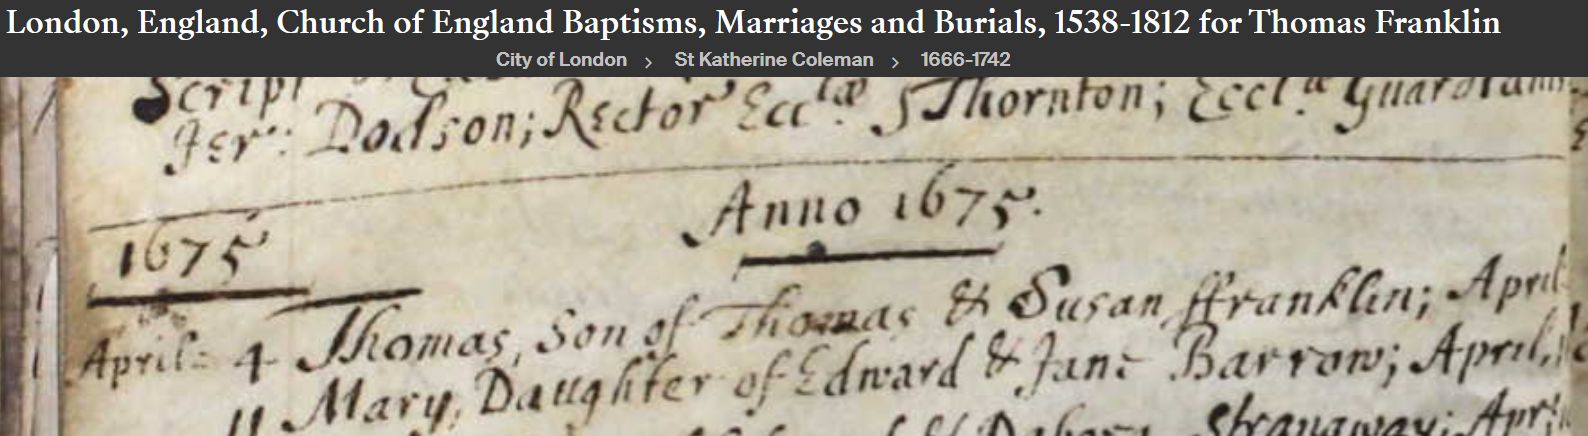 London, England, Church of England Baptisms, Marriages and Burials, 1538-1812 for Thomas Franklin
City of London > St Katherine Coleman > 1666-1742
Script
Jerᵉ: Dodson; Rector Eccˡᵃᵉ J Thornton; Eccl.ᵃ
Anno 1675.
1675
April: 4 Thomas, Son of Thomas & Susan ffranklin; April
11 Mary, Daughter of Edward & Jane Barrow; April,
Stranaway; Apr